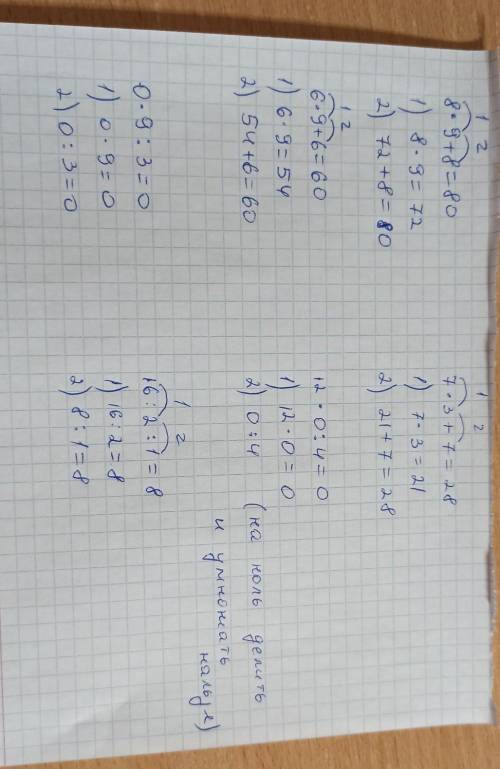 1 2
8·9+8=80
1) 8·9=72
2) 72+8=80
1 2
6·9+6=60
1) 6·9=54
2) 54+6=60
0·9:3=0
1) 0·9=0
2) 0:3=0
1 2
7·3+7=28
1) 7·3=21
2) 21+7=28
12·0:4=0
1) 12·0=0
2) 0:4 (на ноль делить
и умножать
нальзя)
1 2
16:2:1=8
1) 16:2=8
2) 8:1=8